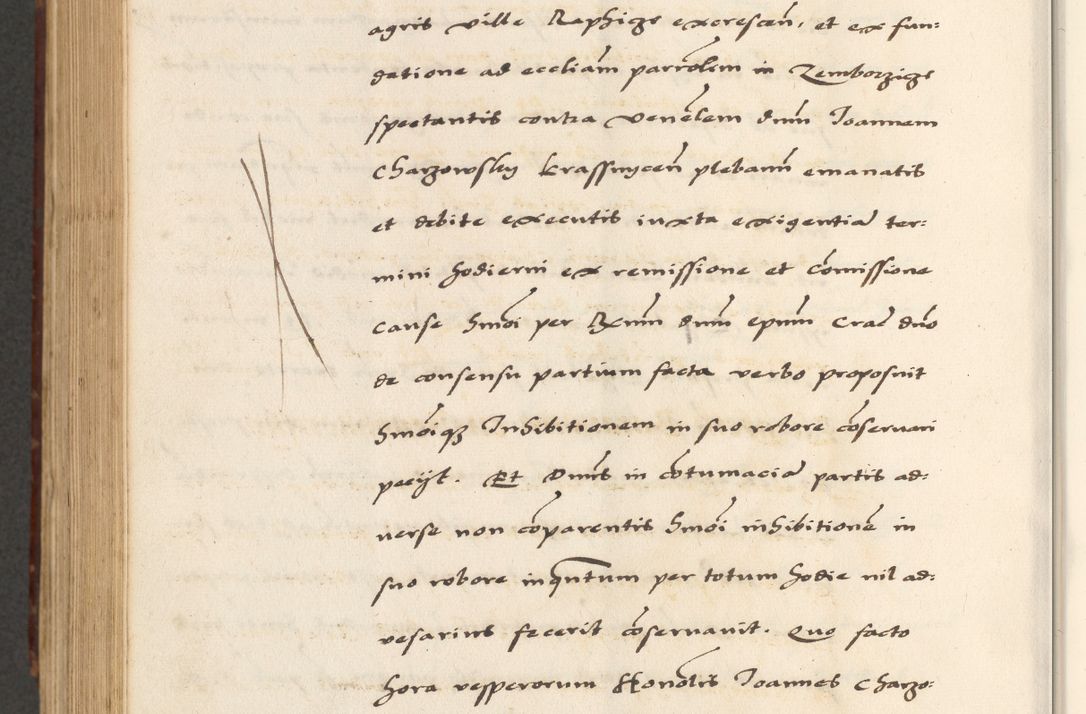 agris ville Raphicze excrescen. et ex fun:
datione ad eccliam parrolem in Zemborzicze
spectantis contra venelem dnm Ioannem
Charzowsky krassnycen plebanm emanatis
et debite executis iuxta exigentia ter:
mini hodierni ex remissione et comissione
cause hmoi per Rxmm dnm epnm Crac dno
de consensu partium facta verbo proposuit
hmoiqz Inhibitionem in suo robore conservari
pecyt. Et Dnus in cotumacia partis ad:
verse non coparentis hmoi inhibitione in
suo robore inqntum per totum hodie nil ad:
vesarius fecerit coservavit. Quo facto
hora vesperorum Honolis Ioannes Charzo: